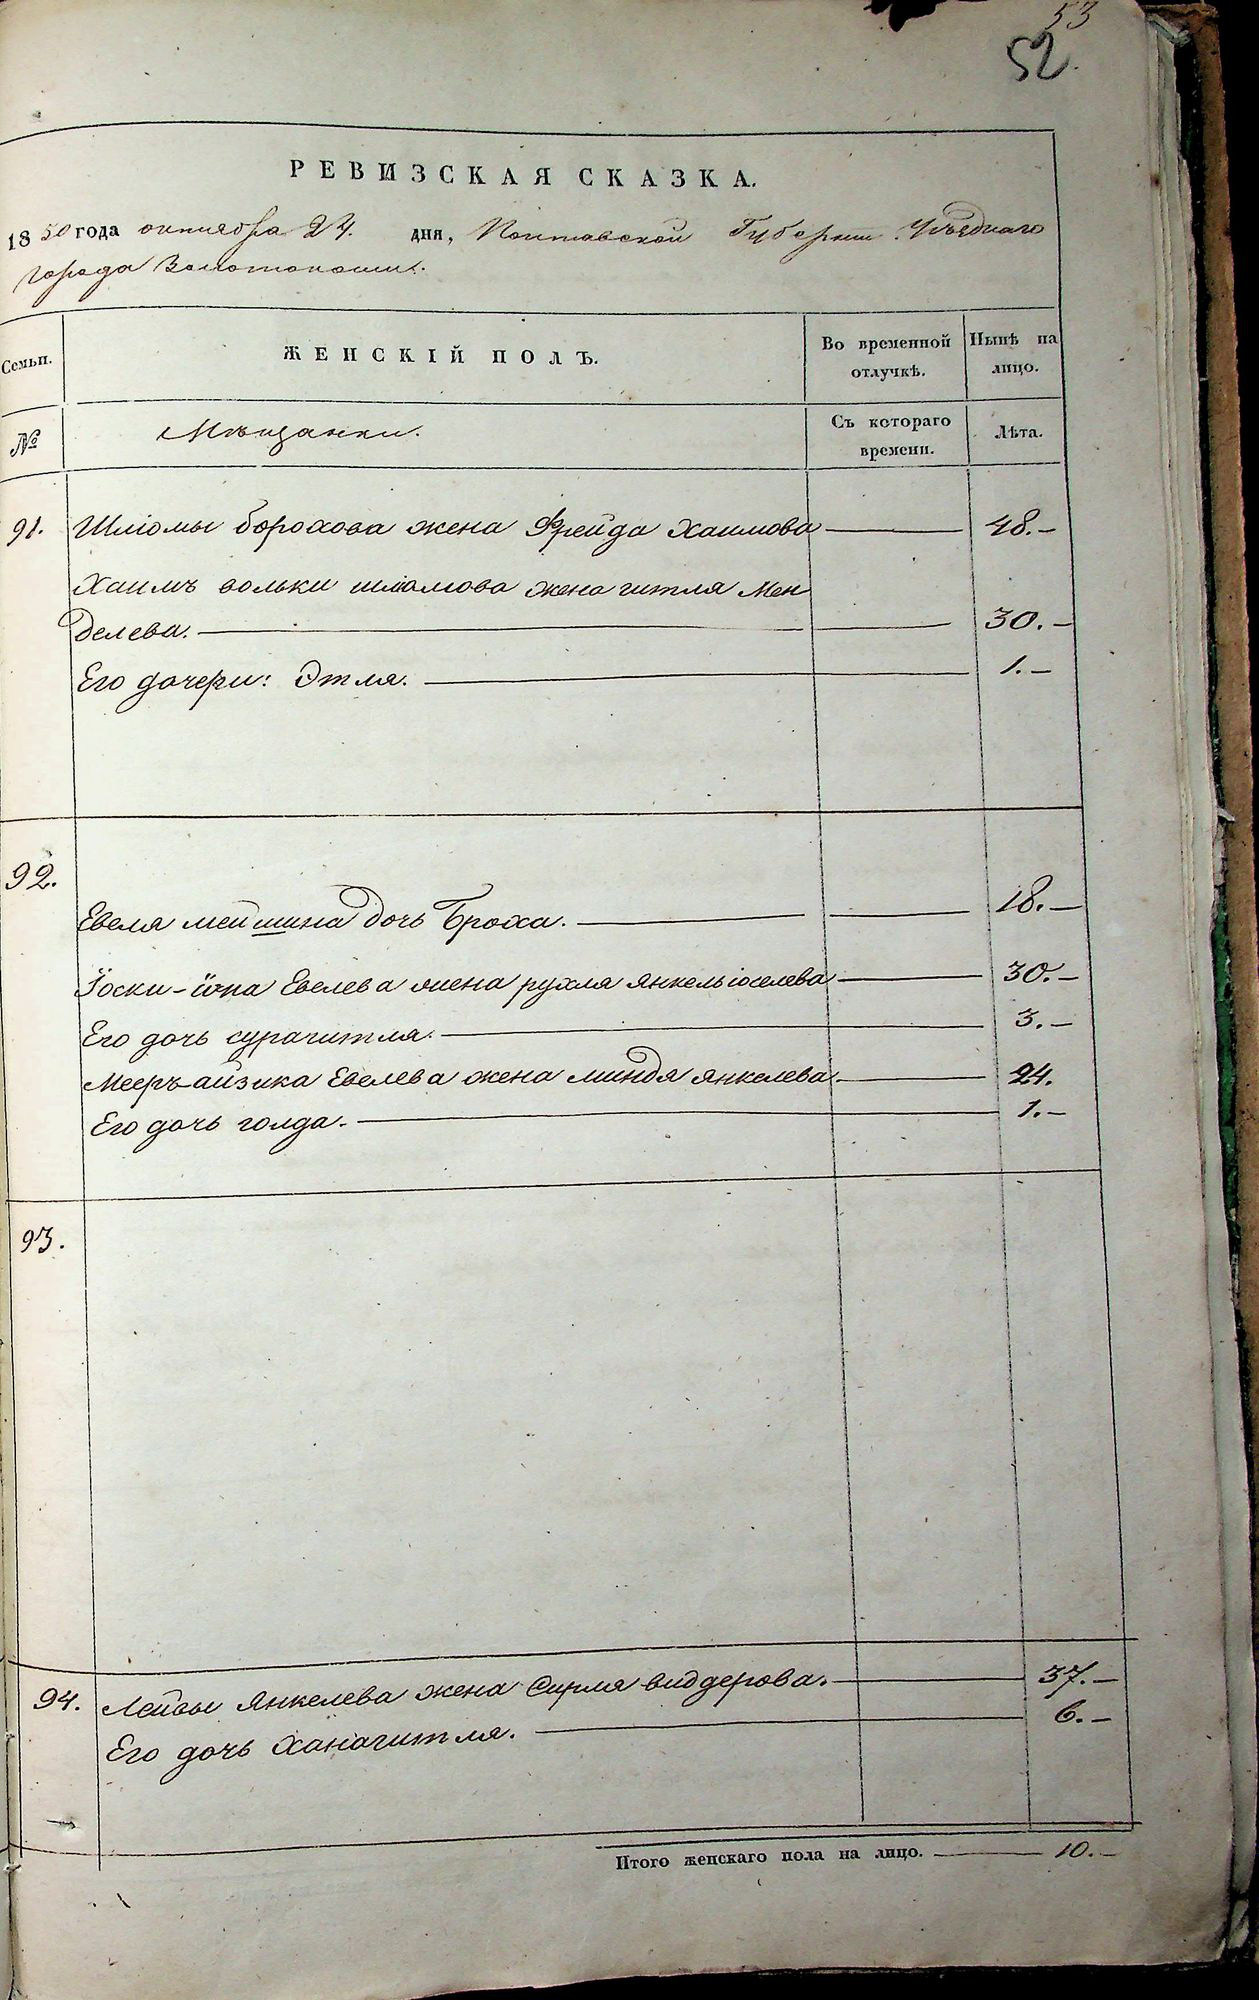 53
52.
РЕВИЗСКАЯ СКАЗКА.
1850 года октября 24. дня, Полтавской Губернии Уѣзднаго
города Золотоноши.
Семьи. ЖЕНСКІЙ ПОЛЪ. Во временной отлучкѣ. Нынѣ на лицо.
№ Мѣщанки. Съ котораго времени. Лѣта.
91. Шліомы борохова жена Фрейда Хаимова 48.
Хаимъ вольки шліомова жена гитля Мен
делева. 30.
Его дочери: Этля. 1.
92.
Евеля мейшина дочь Броха. 18.
Іоски-іопа Евелева жена рухля янкельіоселева 30.
Его дочь сурагитля. 3.
Мееръ-айзика Евелева жена миндя янкелева 24.
Его дочь голда. 1.
93.
94. Лейбы Янкелева жена Сирля видерова. 37.
Его дочь Ханагитля. 6.
Итого женскаго пола на лицо. 10.